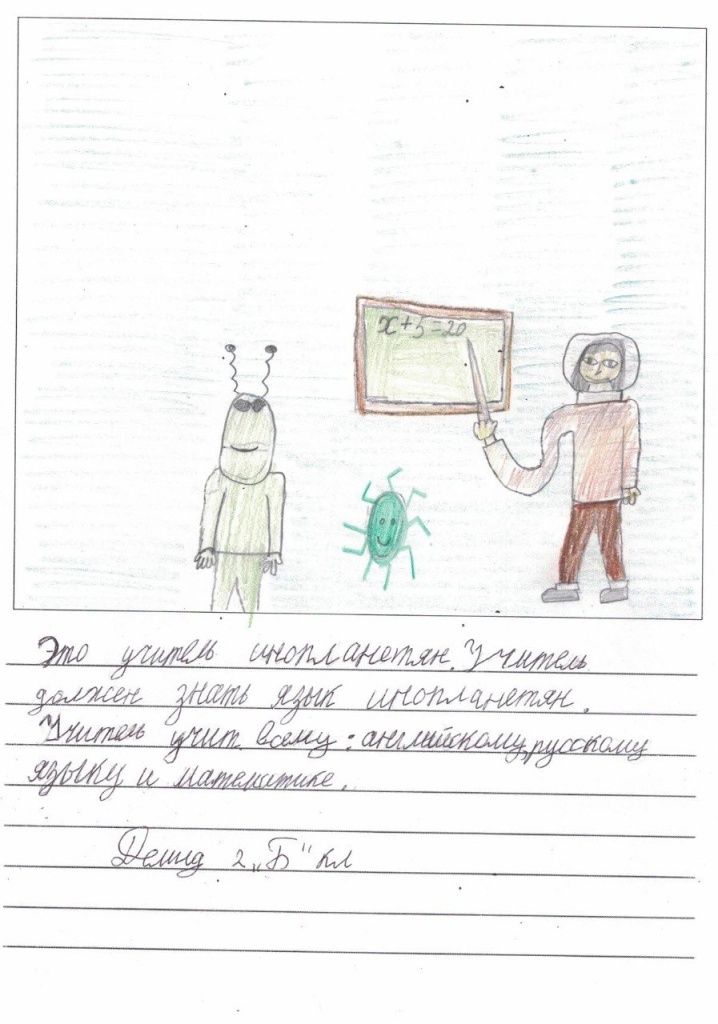 x+5=20
Это учитель инопланетян. Учитель
должен знать язык инопланетян.
Учитель учит всему: английскому, русскому
языку и математике.
Демид 2 „Б" кл